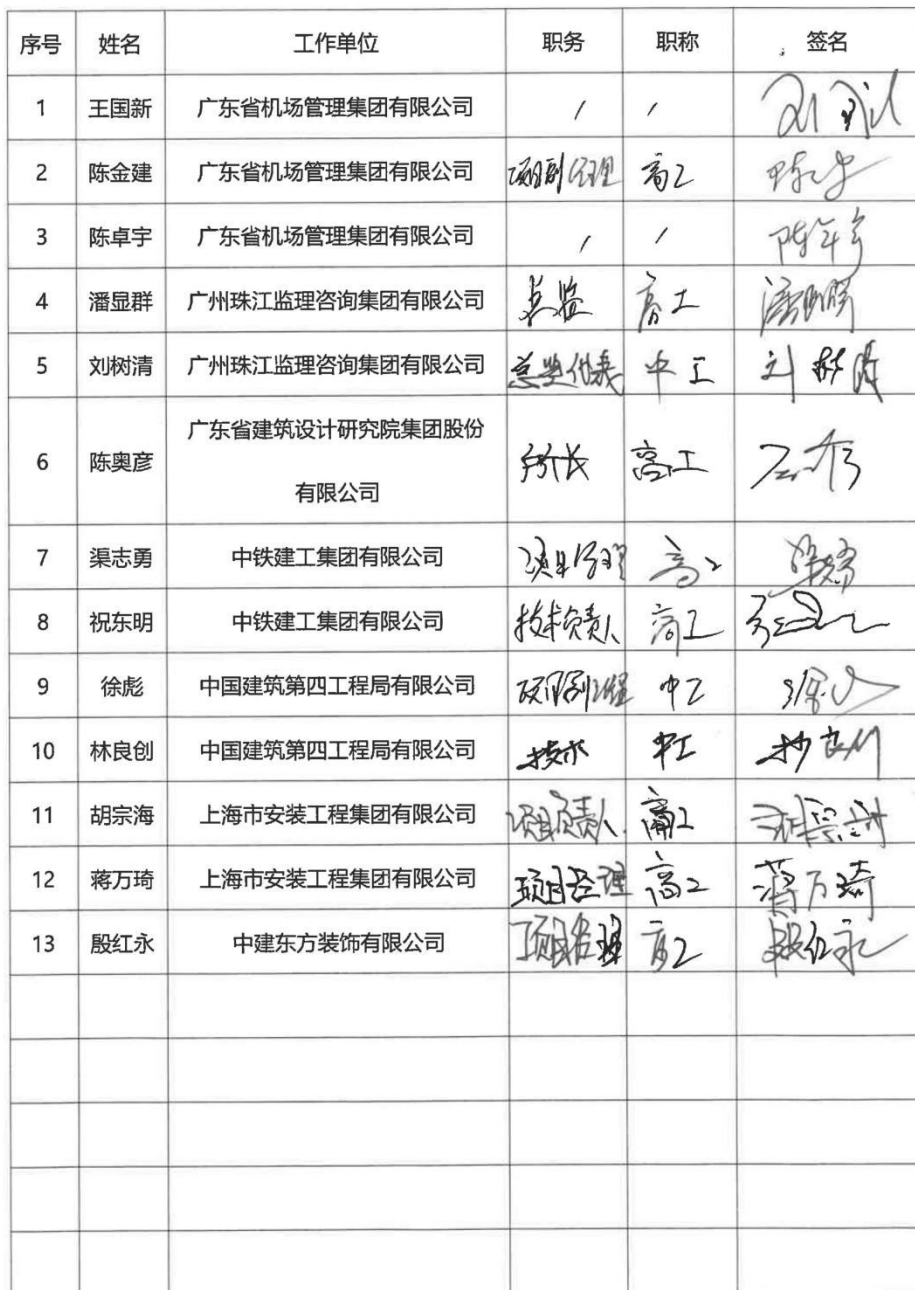 序号 姓名 工作单位 职务 职称 签名
1 王国新 广东省机场管理集团有限公司 / /
2 陈金建 广东省机场管理集团有限公司 项目副经理 高工
3 陈卓宇 广东省机场管理集团有限公司 / /
4 潘显群 广州珠江监理咨询集团有限公司 总监 高工
5 刘树清 广州珠江监理咨询集团有限公司 总监代表 中工 刘树清
6 陈奥彦 广东省建筑设计研究院集团股份
有限公司 所长 高工
7 渠志勇 中铁建工集团有限公司 项目经理 高工
8 祝东明 中铁建工集团有限公司 技术负责人 高工
9 徐彪 中国建筑第四工程局有限公司 中工
10 林良创 中国建筑第四工程局有限公司 技术 中工 林良创
11 胡宗海 上海市安装工程集团有限公司 项目负责人 高工
12 蒋万琦 上海市安装工程集团有限公司 项目经理 高工 蒋万琦
13 殷红永 中建东方装饰有限公司 项目经理 高工 殷红永